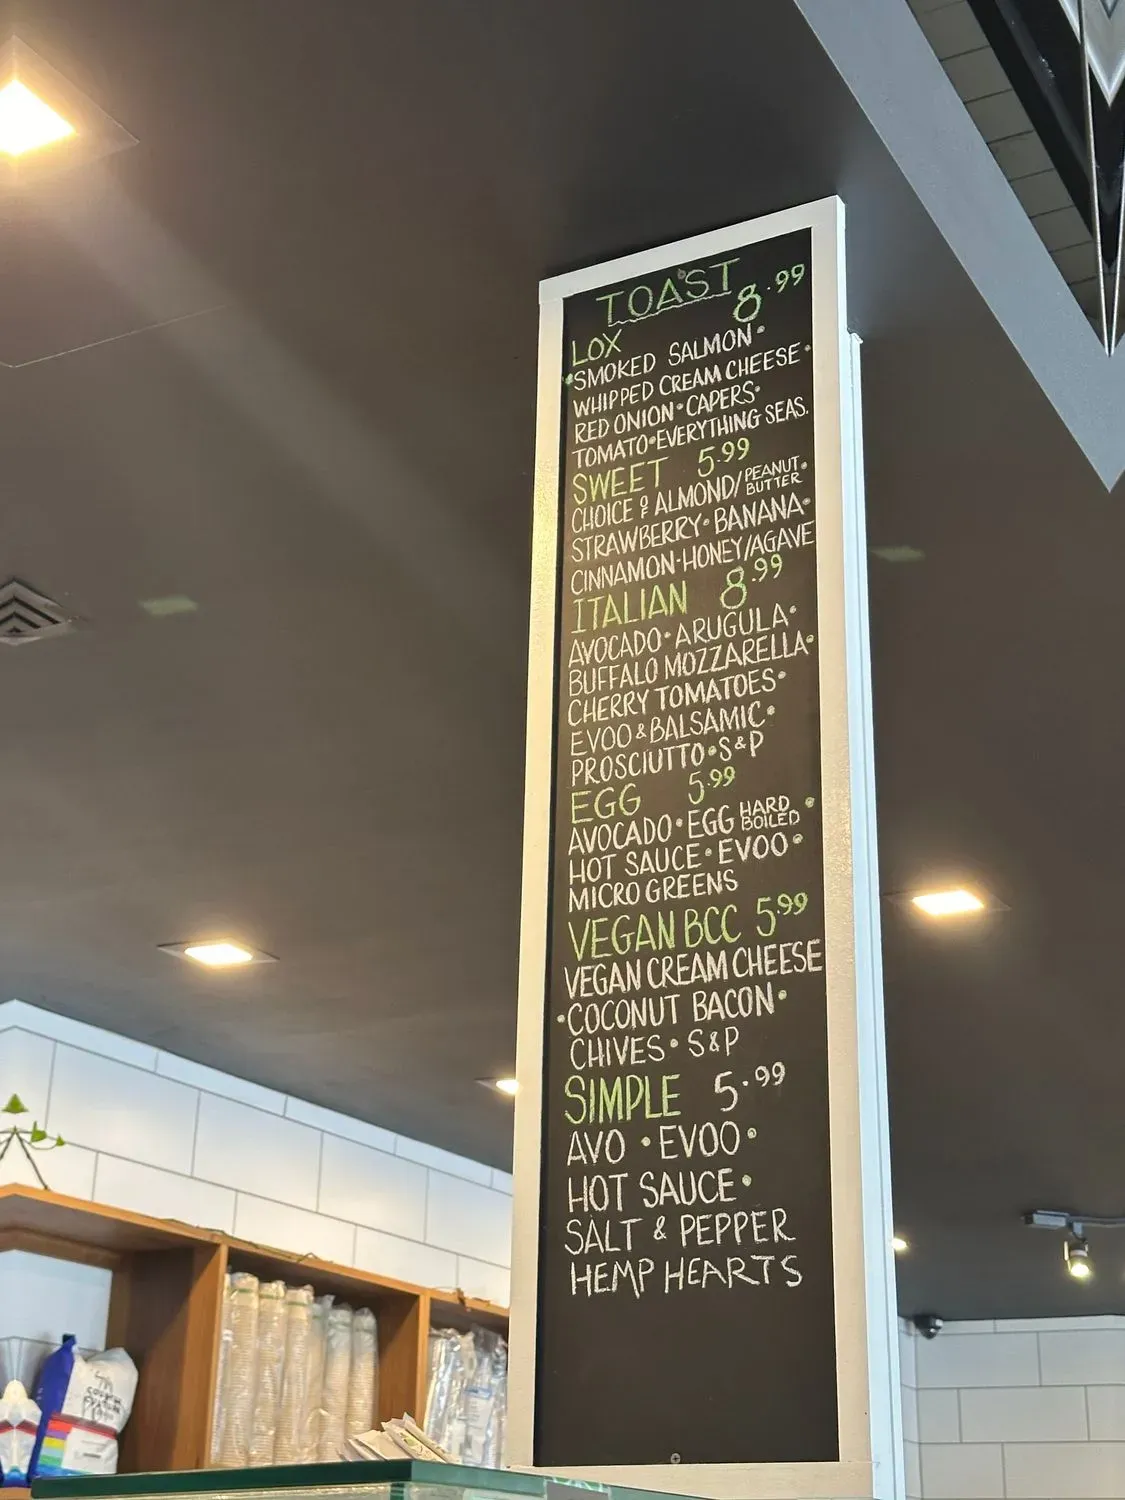 TOAST
LOX 8.99
•SMOKED SALMON•
WHIPPED CREAM CHEESE•
RED ONION•CAPERS•
TOMATO•EVERYTHING SEAS.
SWEET 5.99
CHOICE OF ALMOND/PEANUT BUTTER•
STRAWBERRY•BANANA•
CINNAMON-HONEY/AGAVE
ITALIAN 8.99
AVOCADO•ARUGULA•
BUFFALO MOZZARELLA•
CHERRY TOMATOES•
EVOO & BALSAMIC•
PROSCIUTTO•S&P
EGG 5.99
AVOCADO•EGG HARD BOILED•
HOT SAUCE•EVOO•
MICRO GREENS
VEGAN BCC 5.99
VEGAN CREAM CHEESE
•COCONUT BACON•
CHIVES•S&P
SIMPLE 5.99
AVO •EVOO•
HOT SAUCE•
SALT & PEPPER
HEMP HEARTS